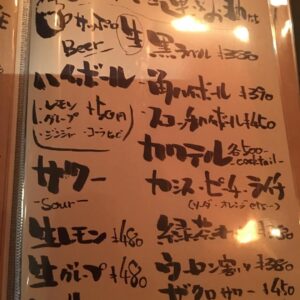 サッポロ
Beer
生 黒ラベル ¥380
ハイボール
・レモン
・グレープ
・ジンジャー・コーラなど
+50円
角ハイボール ¥390
スコッチハイボール ¥450
カクテル 各500-
-cocktail-
カシス・ピーチ・ライチ
(ソーダ・オレンジ etc…)
サワー
-Sour-
生レモン ¥480
生グレープ ¥480
緑茶
ウーロン割り ¥380
ザクロサワー ¥450